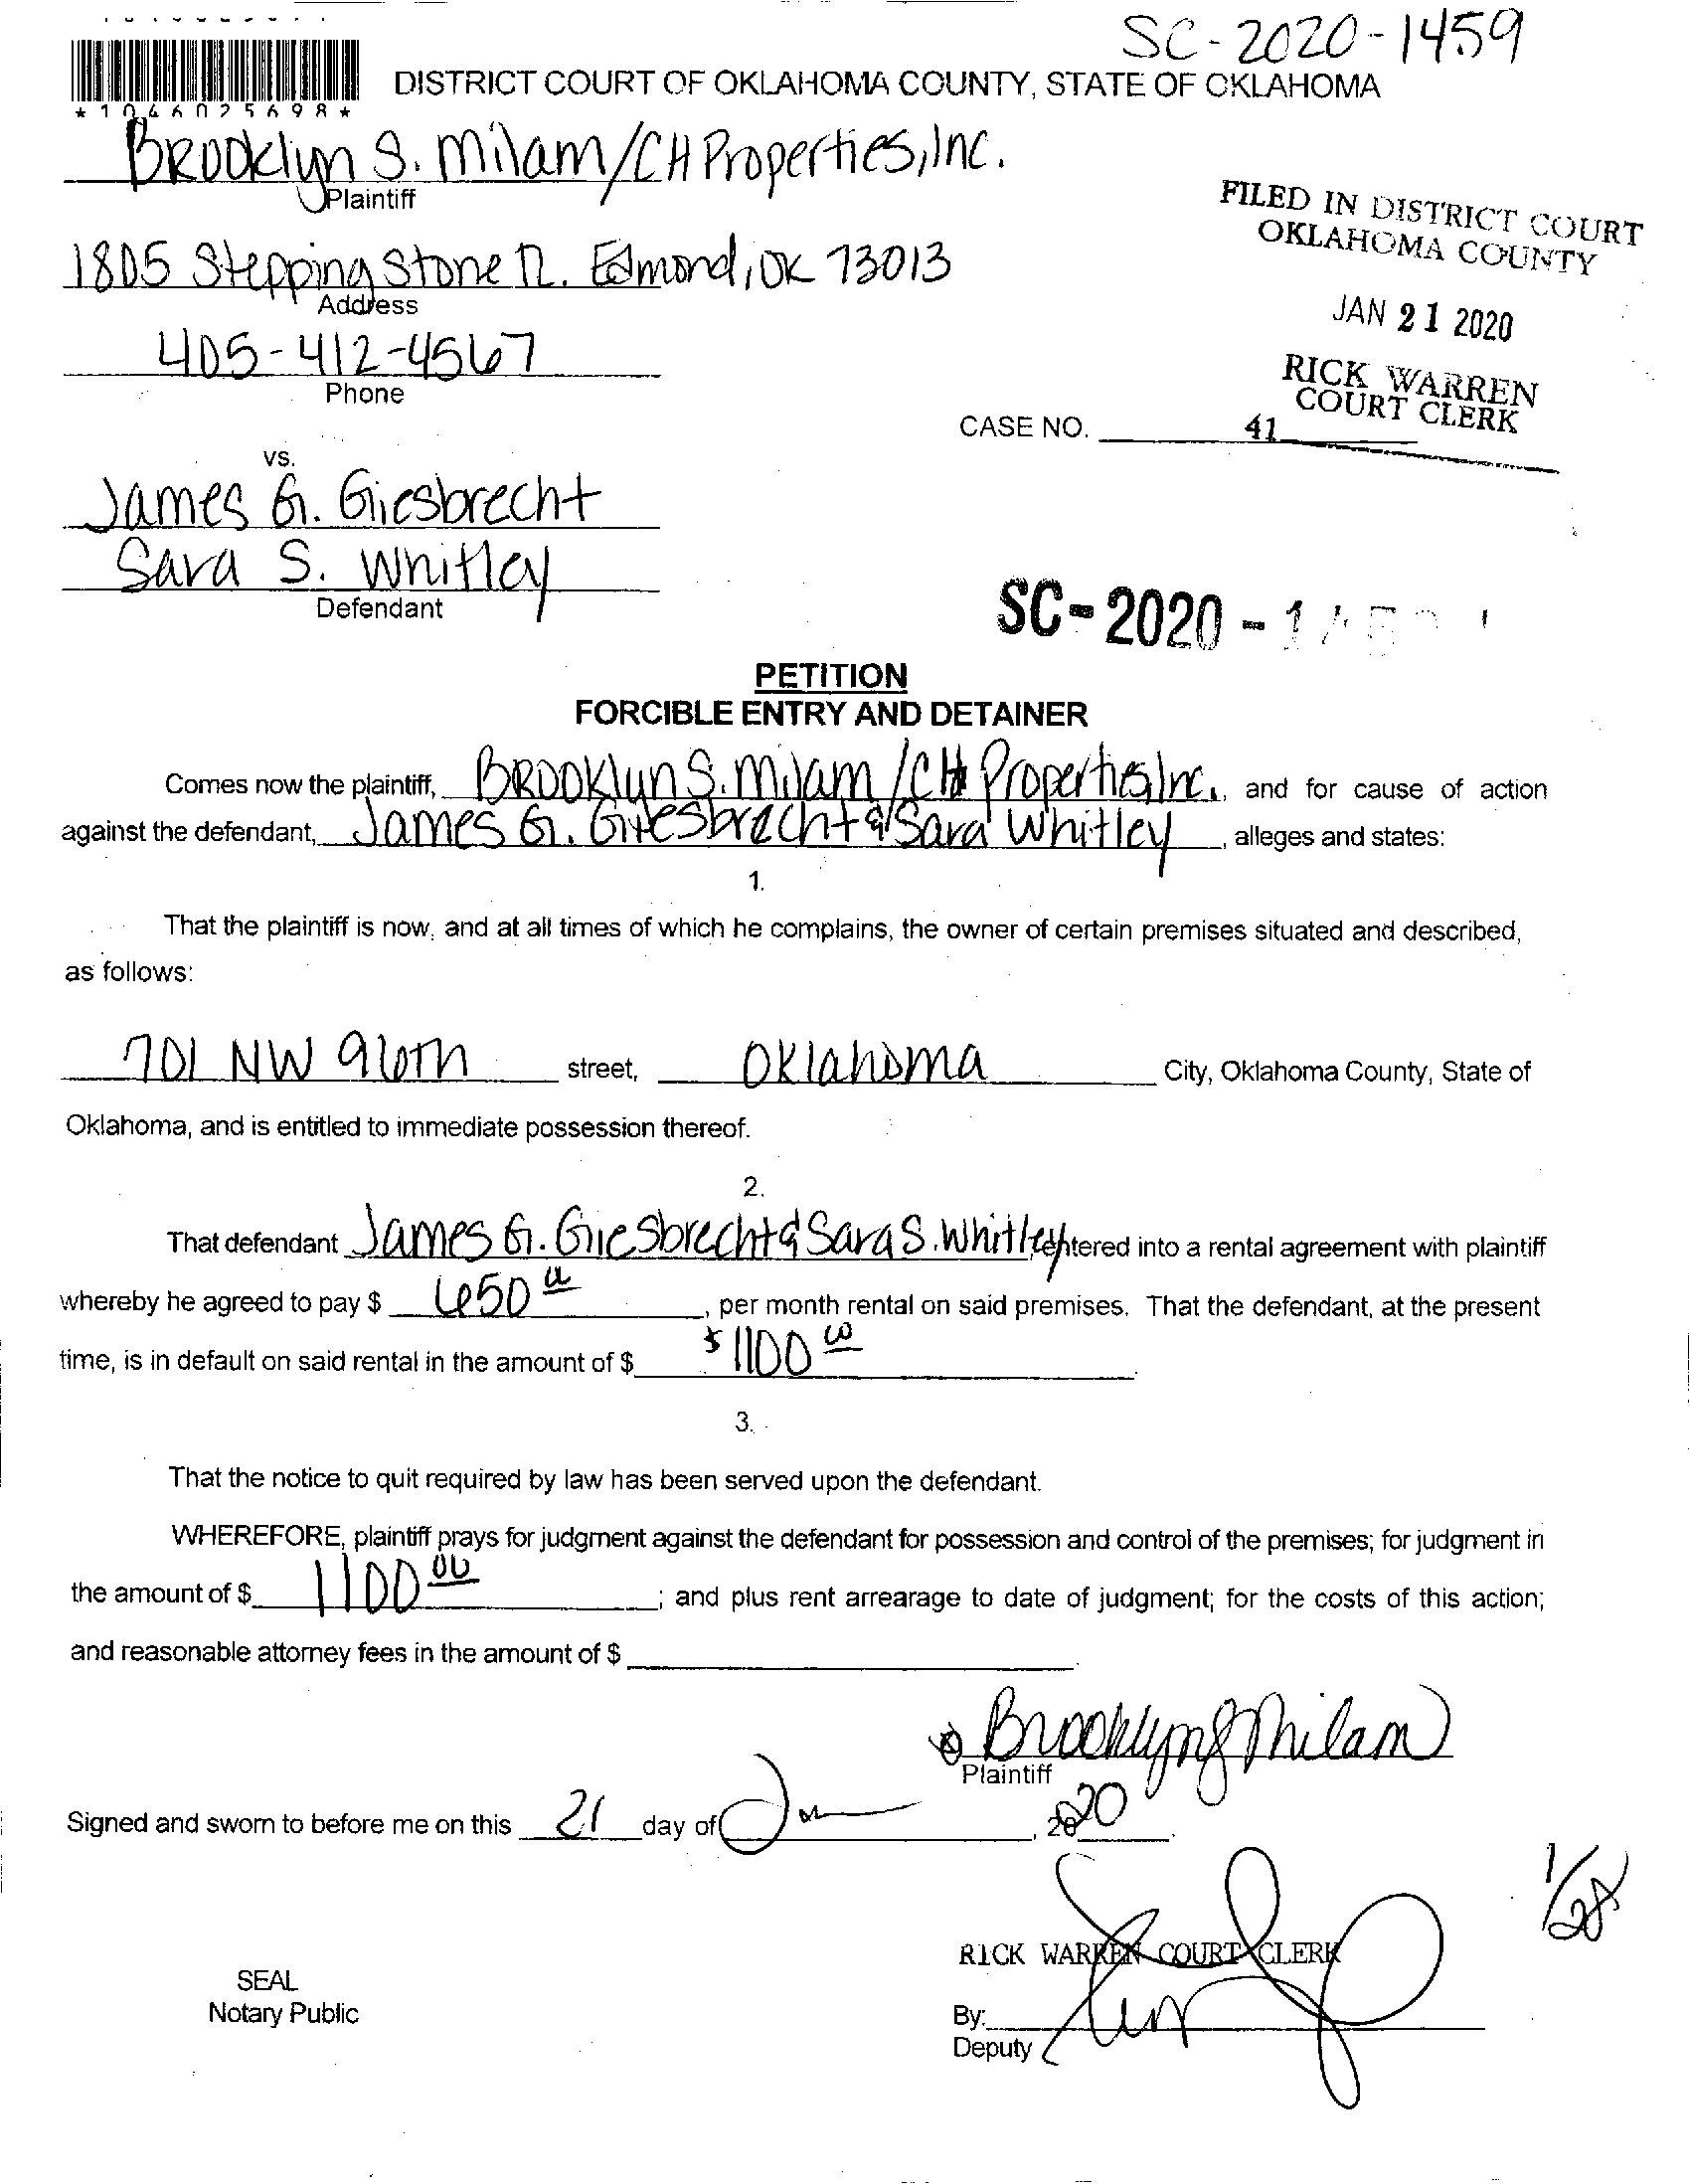 SC-2020-1459
DISTRICT COURT OF OKLAHOMA COUNTY, STATE OF OKLAHOMA
*1046025698*
Brooklyn S. Milam/CH Properties, Inc.
Plaintiff
1805 Stepping Stone Tr. Edmond, OK 73013
Address
405-412-4567
Phone
FILED IN DISTRICT COURT
OKLAHOMA COUNTY
JAN 21 2020
RICK WARREN
COURT CLERK
CASE NO. 41
vs.
James G. Giesbrecht
Sara S. Whitley
Defendant
SC-2020-145
PETITION
FORCIBLE ENTRY AND DETAINER
Comes now the plaintiff, Brooklyn S. Milam/CH Properties Inc., and for cause of action
against the defendant, James G. Giesbrecht & Sara Whitley, alleges and states:
1.
That the plaintiff is now, and at all times of which he complains, the owner of certain premises situated and described,
as follows:
701 NW 96th street, Oklahoma City, Oklahoma County, State of
Oklahoma, and is entitled to immediate possession thereof.
2.
That defendant James G. Giesbrecht & Sara S. Whitley entered into a rental agreement with plaintiff
whereby he agreed to pay $ 650 00, per month rental on said premises. That the defendant, at the present
time, is in default on said rental in the amount of $ $1100 00.
3.
That the notice to quit required by law has been served upon the defendant.
WHEREFORE, plaintiff prays for judgment against the defendant for possession and control of the premises; for judgment in
the amount of $ 1100 00; and plus rent arrearage to date of judgment; for the costs of this action;
and reasonable attorney fees in the amount of $
Brooklyn S Milam
Plaintiff
Signed and sworn to before me on this 21 day of Jan, 2020.
1/28
RICK WARREN COURT CLERK
SEAL
Notary Public
By:
Deputy